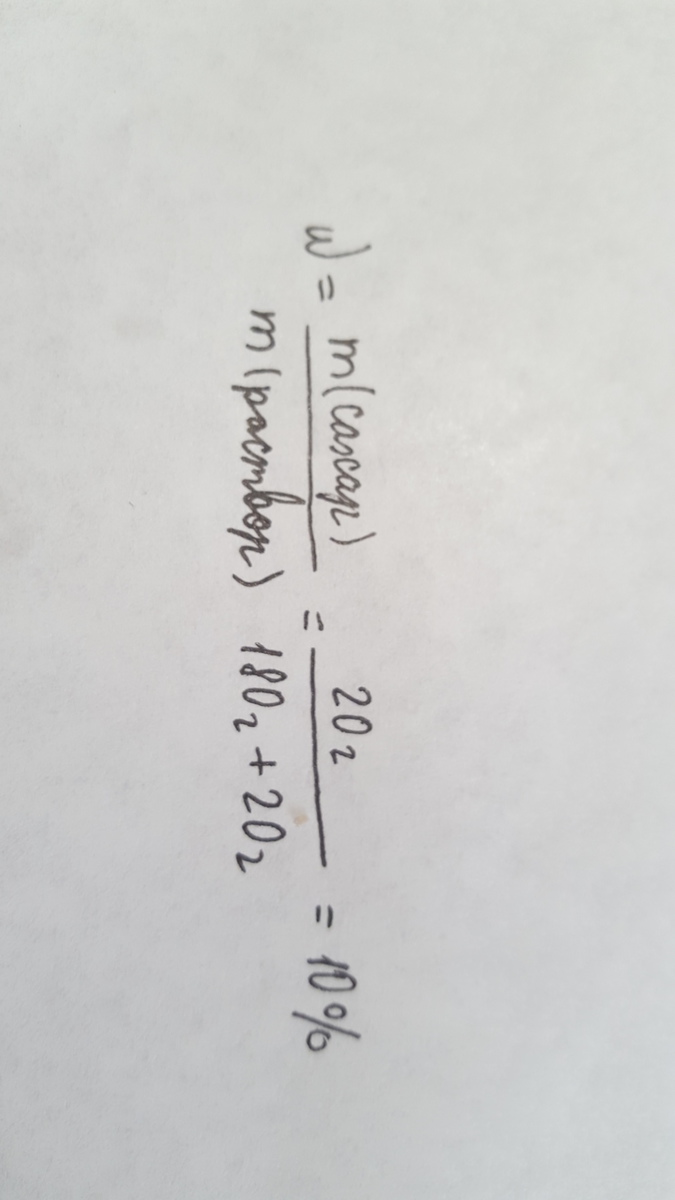 ω = m(сахар) / m(раствор) = 20г / 180г + 20г = 10%